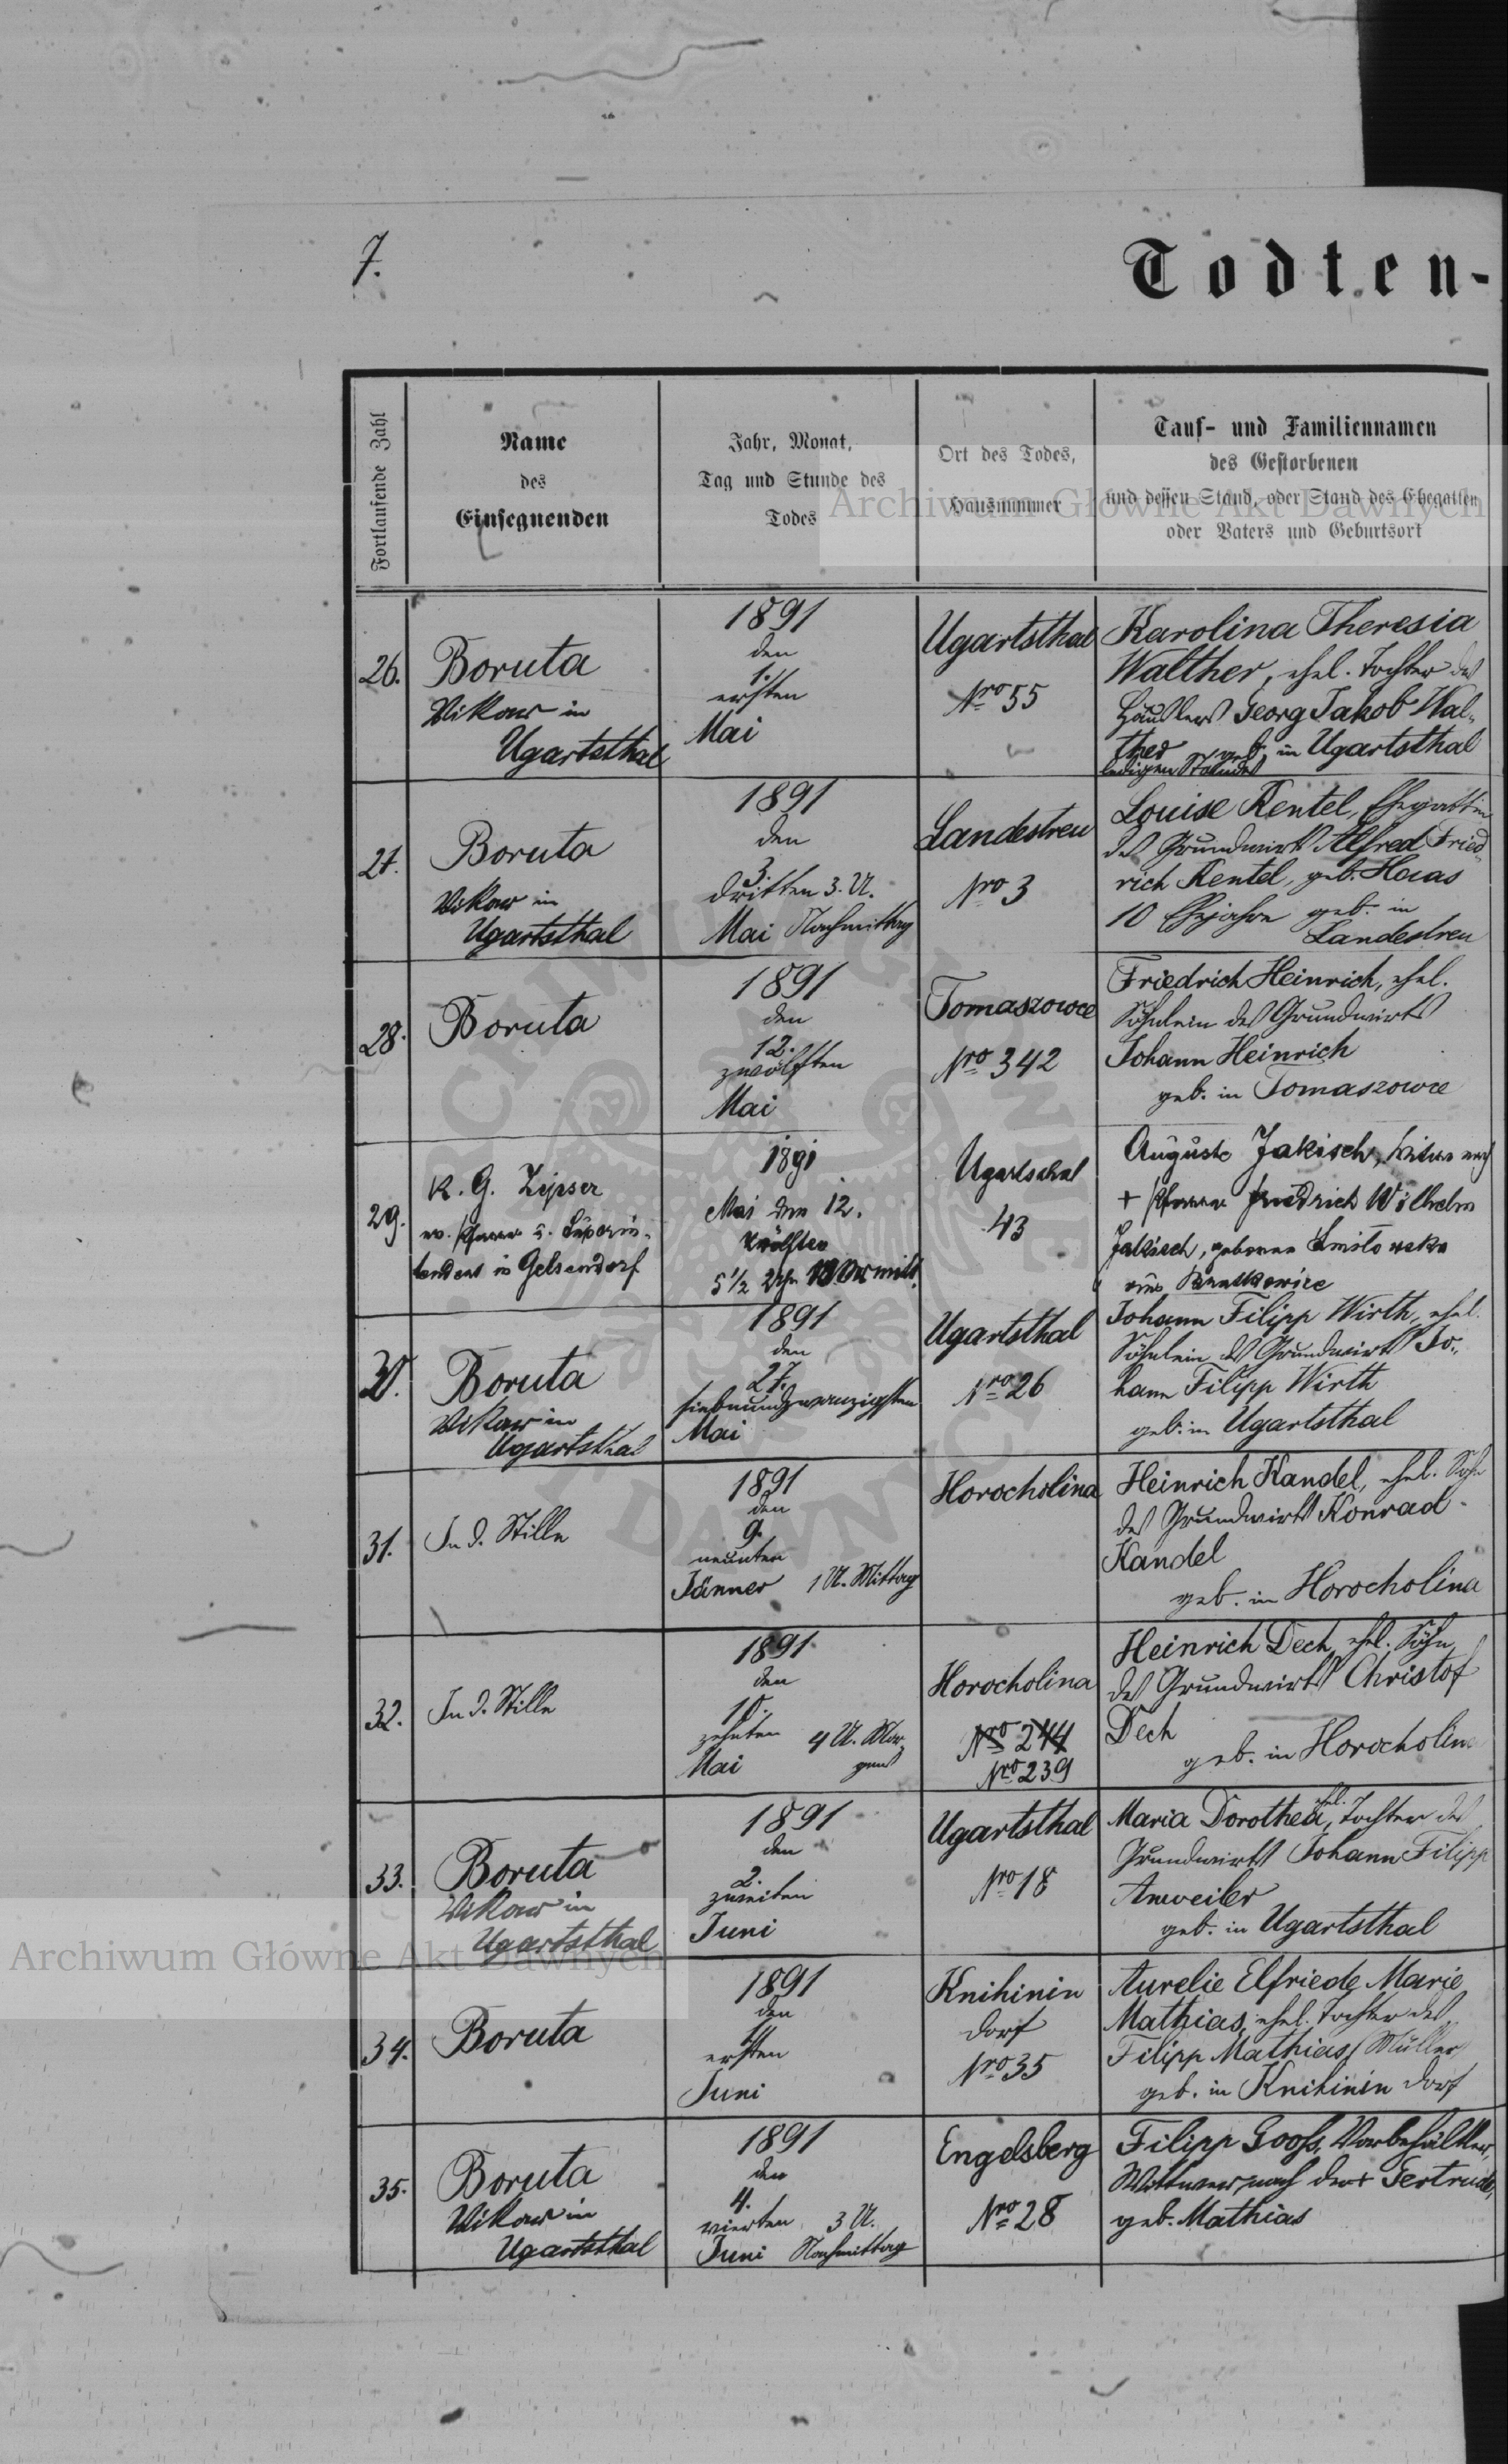 7.
Todten-
Fortlaufende Zahl
Name
des
Einsegnenden
Jahr, Monat,
Tag und Stunde des
Todes
Ort des Todes,
Hausnummer
Tauf- und Familiennamen
des Gestorbenen
und dessen Stand, oder Stand des Ehegatten
oder Vaters und Geburtsort
Archiwum Główne Akt Dawnych
26.
Boruta
Vikar in
Ugartsthal
1891
den
1.
ersten
Mai
Ugartsthal
Nro 55
Karolina Theresia
Walther, ehel. Tochter des
Häuslers Georg Jakob Wal-
ther geb. in Ugartsthal
ledigen Standes
27.
Boruta
Vikar in
Ugartsthal
1891
den
3.
dritten 3. U.
Mai Nachmittag
Landestreu
Nro 3
Louise Rentel, Ehegattin
des Grundwirts Alfred Fried-
rich Rentel, geb. Haas
10 Ehejahre geb. in
Landestreu
28.
Boruta
1891
den
12.
zwölften
Mai
Tomaszowce
Nro 342
Friedrich Heinrich, ehel.
Söhnlein des Grundwirts
Johann Heinrich
geb. in Tomaszowce
29.
K. G. Zipser
ev. Pfarrer u. Superin-
tendent in Gelsendorf
1891
Mai den 12.
zwölften
5 1/2 Uhr Vormitt.
Ugartsthal
43
Auguste Jakisch, Witwe nach
+ Pfarrer Friedrich Wilhelm
Jakisch, geborene
aus
30.
Boruta
Vikar in
Ugartsthal
1891
den
27.
siebenundzwanzigsten
Mai
Ugartsthal
Nro 26
Johann Filipp Wirth, ehel.
Söhnlein des Grundwirts Jo-
hann Filipp Wirth
geb. in Ugartsthal
31.
In d. Stille
1891
den
9.
neunten
Jänner 1 U. Mittag
Horocholina
Heinrich Kandel, ehel. Sohn
des Grundwirts Konrad
Kandel
geb. in Horocholina
32.
In d. Stille
1891
den
10.
zehnten 4 U. Mor-
Mai gens
Horocholina
Nro 244
Nro 239
Heinrich Dech, ehel. Sohn
des Grundwirts Christof
Dech
geb. in Horocholina
33.
Boruta
Vikar in
Ugartsthal
1891
den
2.
zweiten
Juni
Ugartsthal
Nro 18
Maria Dorothea, ehel. Tochter des
Grundwirts Johann Filipp
Anweiler
geb. in Ugartsthal
34.
Boruta
1891
den
1.
ersten
Juni
Knihinin
Dorf
Nro 35
Aurelie Elfriede Marie
Mathias, ehel. Tochter des
Filipp Mathias, Müller
geb. in Knihinin Dorf
35.
Boruta
Vikar in
Ugartsthal
1891
den
4.
vierten 3 U.
Juni Nachmittag
Engelsberg
Nro 28
Filipp Gooss, Vorbehältler,
Wittwer nach der + Gertrude,
geb. Mathias
Archiwum Główne Akt Dawnych